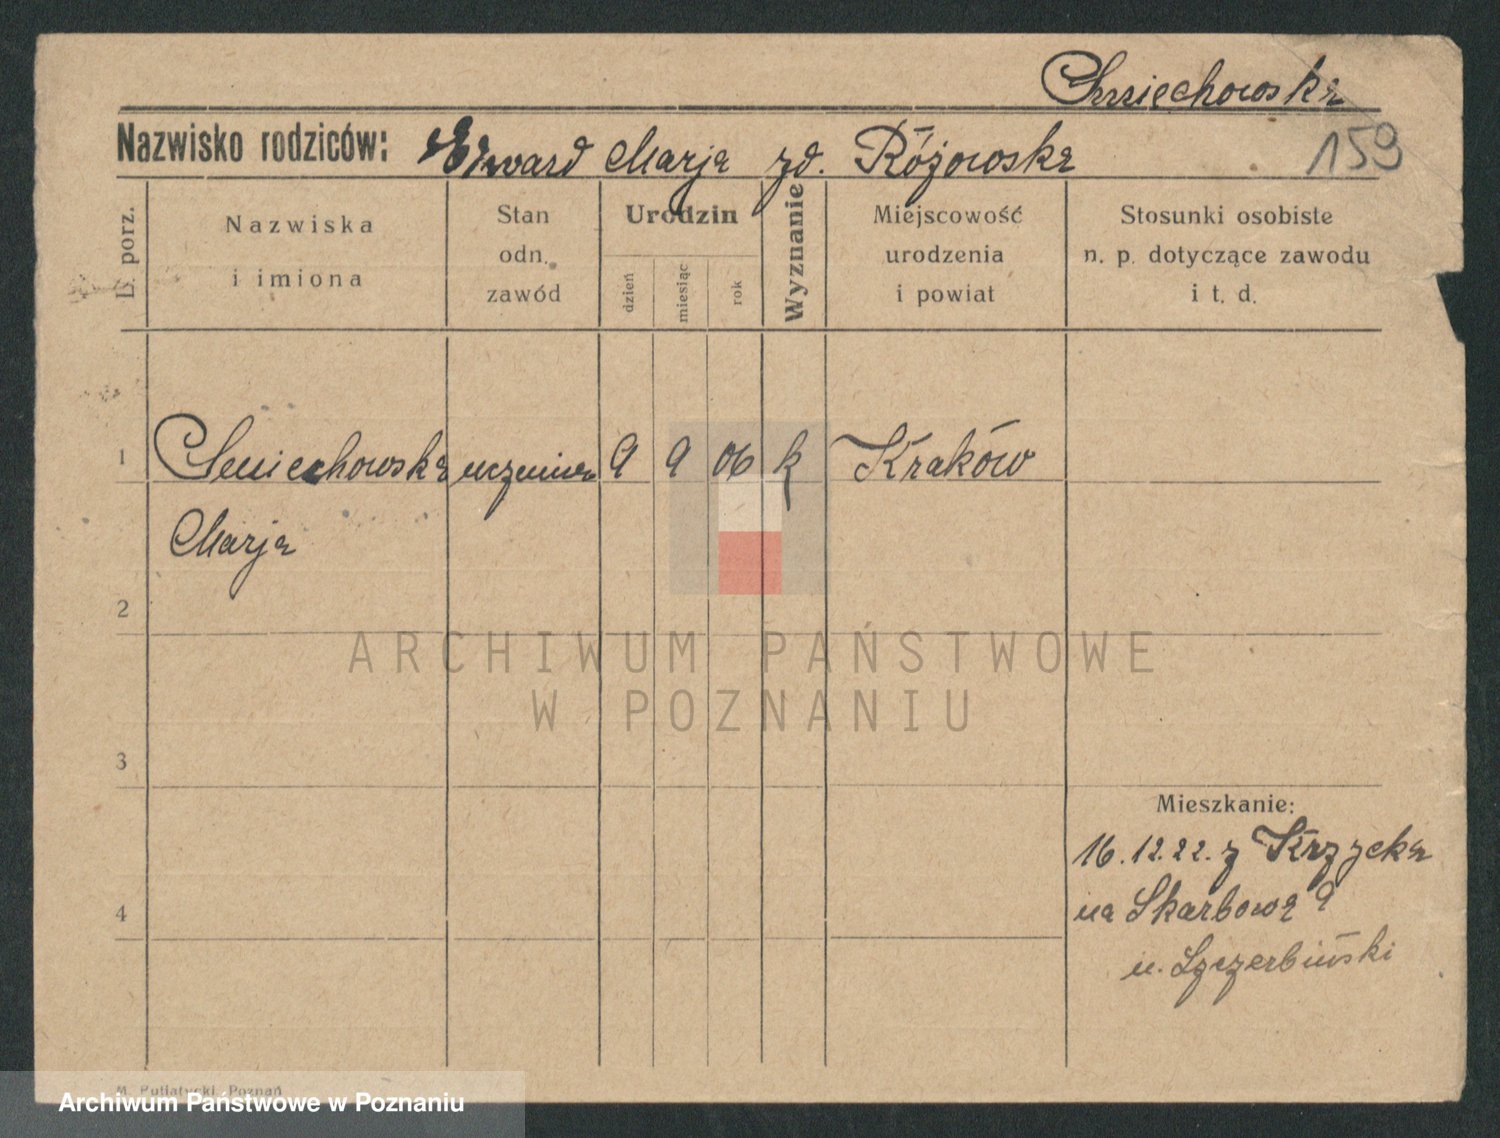 Śmiechowska
Nazwisko rodziców: Edward Marja zd. Różowska
159
L. porz.
Nazwiska
i imiona
Stan
odn.
zawód
Urodzin
dzień
miesiąc
rok
Wyznanie
Miejscowość
urodzenia
i powiat
Stosunki osobiste
n. p. dotyczące zawodu
i t. d.
1 Śmiechowska uczenica 9 9 06 k Kraków
Marja
2
ARCHIWUM PAŃSTWOWE
W POZNANIU
3
Mieszkanie:
16.12.22. z Krzycka
4
na Skarbową 9
u. Szczerbiński
M. Putiatycki, Poznań
Archiwum Państwowe w Poznaniu